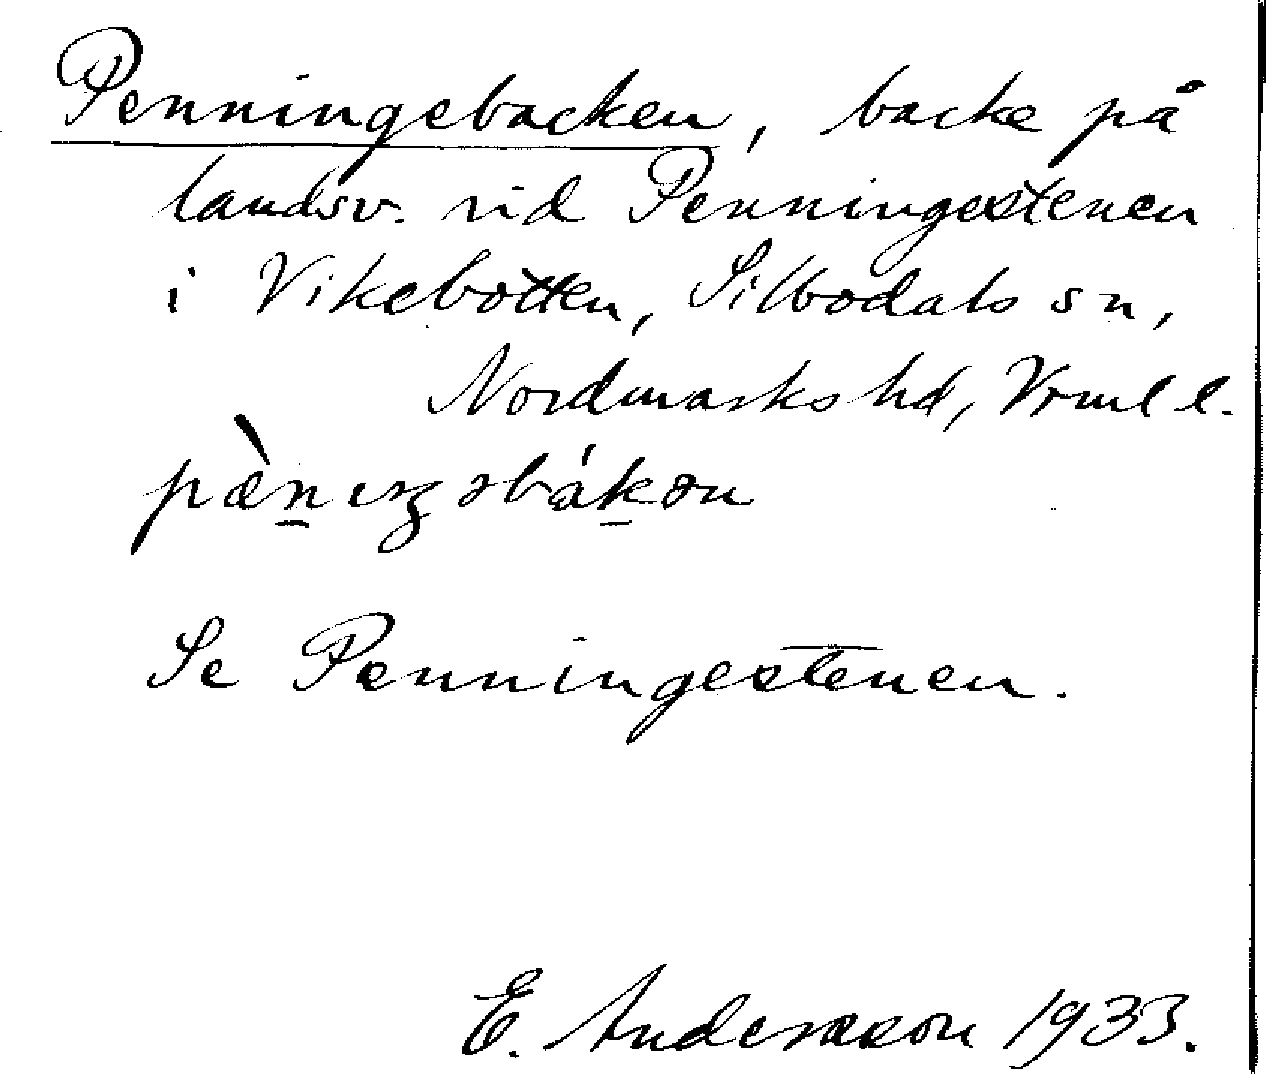 Penningebacken, backe på
landsv. vid Penningestenen
i Vikebotten, Silbodals sn,
Nordmarks hd, Vrml l.
pæ̀n̲ıŋəbák̲ən
Se Penningestenen.
E. Andersson 1933.